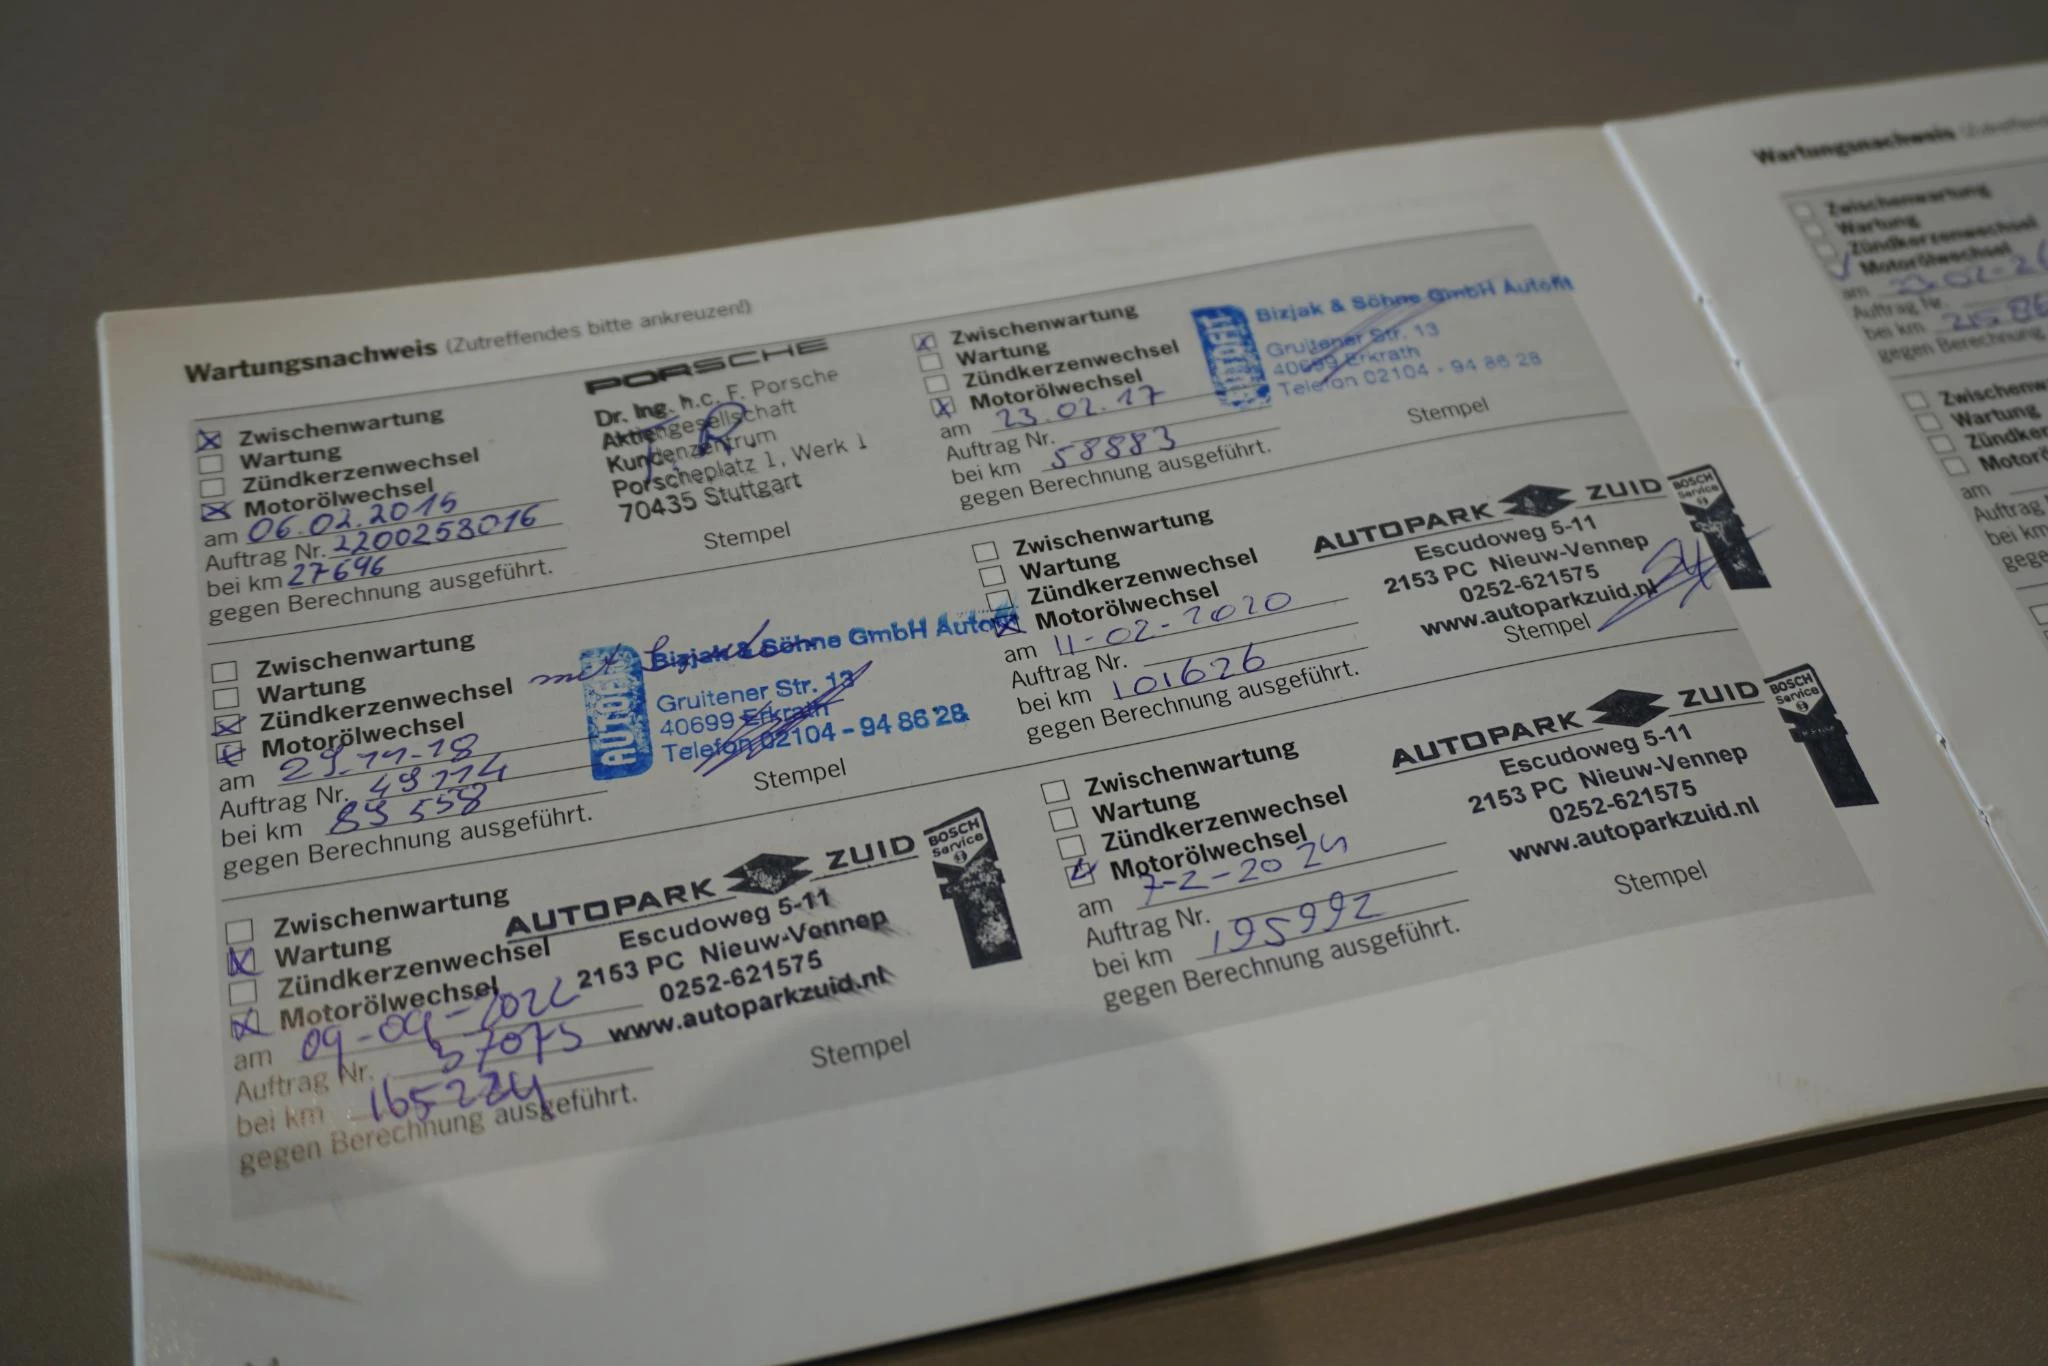 Wartungsnachweis (Zutreffendes bitte ankreuzen!)
Zwischenwartung
Wartung
Zündkerzenwechsel
Motorölwechsel
am 06.02.2015
Auftrag Nr. 2200253016
bei km 27696
gegen Berechnung ausgeführt.
PORSCHE
Dr. Ing. h.c. F. Porsche
Aktiengesellschaft
Kundenzentrum
Porscheplatz 1, Werk 1
70435 Stuttgart
Stempel
Zwischenwartung
Wartung
Zündkerzenwechsel
Motorölwechsel
am 23.02.17
Auftrag Nr.
bei km 58883
gegen Berechnung ausgeführt.
AUTOFIT
Bizjak & Söhne GmbH Autofit
Gruitener Str. 13
40699 Erkrath
Telefon 02104 - 94 86 28
Stempel
Zwischenwartung
Wartung
Zündkerzenwechsel
Motorölwechsel
am 29.11.18
Auftrag Nr. 49114
bei km 89558
gegen Berechnung ausgeführt.
AUTOFIT
Bizjak & Söhne GmbH Autofit
Gruitener Str. 13
40699 Erkrath
Telefon 02104 - 94 86 28
Stempel
Zwischenwartung
Wartung
Zündkerzenwechsel
Motorölwechsel
am 11-02-2020
Auftrag Nr.
bei km 101626
gegen Berechnung ausgeführt.
AUTOPARK ZUID
BOSCH
Service
Escudoweg 5-11
2153 PC Nieuw-Vennep
0252-621575
www.autoparkzuid.nl
Stempel
Zwischenwartung
Wartung
Zündkerzenwechsel
Motorölwechsel
am 09-09-2022
Auftrag Nr. 37075
bei km 165224
gegen Berechnung ausgeführt.
AUTOPARK ZUID
BOSCH
Service
Escudoweg 5-11
2153 PC Nieuw-Vennep
0252-621575
www.autoparkzuid.nl
Stempel
Zwischenwartung
Wartung
Zündkerzenwechsel
Motorölwechsel
am 7-2-2024
Auftrag Nr.
bei km 195992
gegen Berechnung ausgeführt.
AUTOPARK ZUID
BOSCH
Service
Escudoweg 5-11
2153 PC Nieuw-Vennep
0252-621575
www.autoparkzuid.nl
Stempel
Wartungsnachweis
Zwischenwartung
Wartung
Zündkerzenwechsel
Motorölwechsel
am
Auftrag Nr.
bei km
gegen Berechnung
Wartung
am
Auftrag
bei km